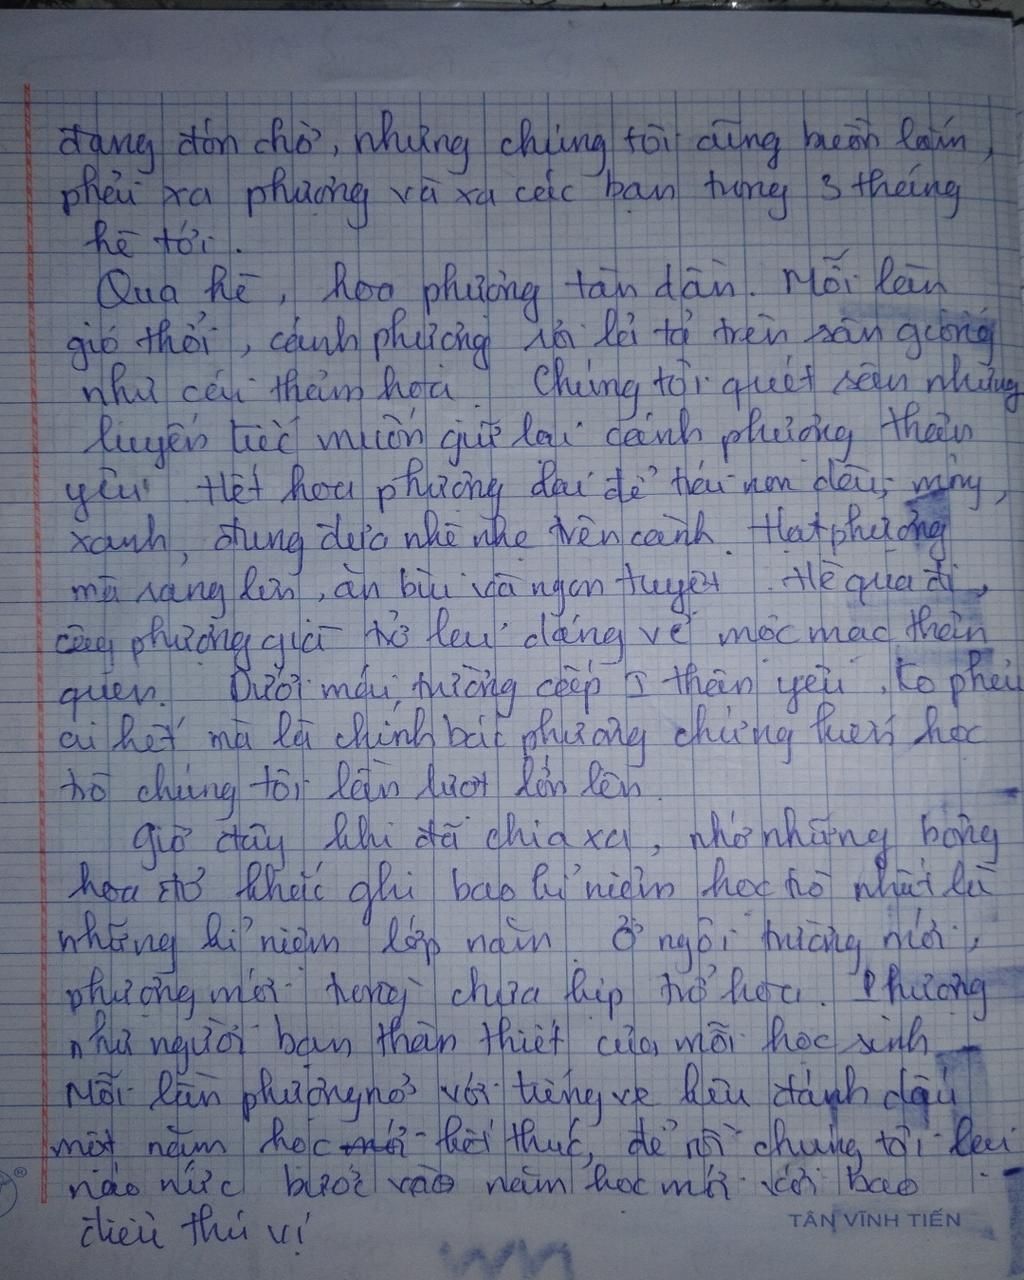 đang đón chờ, nhưng chúng tôi cũng buồn lắm,
phải xa phượng và xa các bạn trong 3 tháng
hè tới.
Qua hè, hoa phượng tàn dần. Mỗi lần
gió thổi, cánh phượng rơi lả tả trên sân giống
như cái thảm hoa. Chúng tôi quét sân nhưng
luyến tiếc muốn giữ lại cánh phượng thân
yêu. Hết hoa phượng lại để trái non dài, mỏng,
xanh, đung đưa nhè nhẹ trên cành. Hạt phượng
mà rang lên, ăn bùi và ngon tuyệt. Hè qua đi,
cây phượng già trở lại dáng vẻ mộc mạc thân
quen. Dưới mái trường cấp I thân yêu, ko phải
ai hết mà là chính bác phượng chứng kiến học
trò chúng tôi lần lượt lớn lên.
Giờ đây khi đã chia xa, nhớ những bông
hoa đỏ khắc ghi bao kỉ niệm học trò nhất là
những kỉ niệm lớp năm. Ở ngôi trường mới,
phượng mới trồng chưa kịp trổ hoa. Phượng
như người bạn thân thiết của mỗi học sinh
Mỗi lần phượng nở với tiếng ve kêu đánh dấu
một năm học kết thúc, để rồi chúng tôi lại
náo nức bước vào năm học mới với bao
điều thú vị
TÂN VĨNH TIẾN